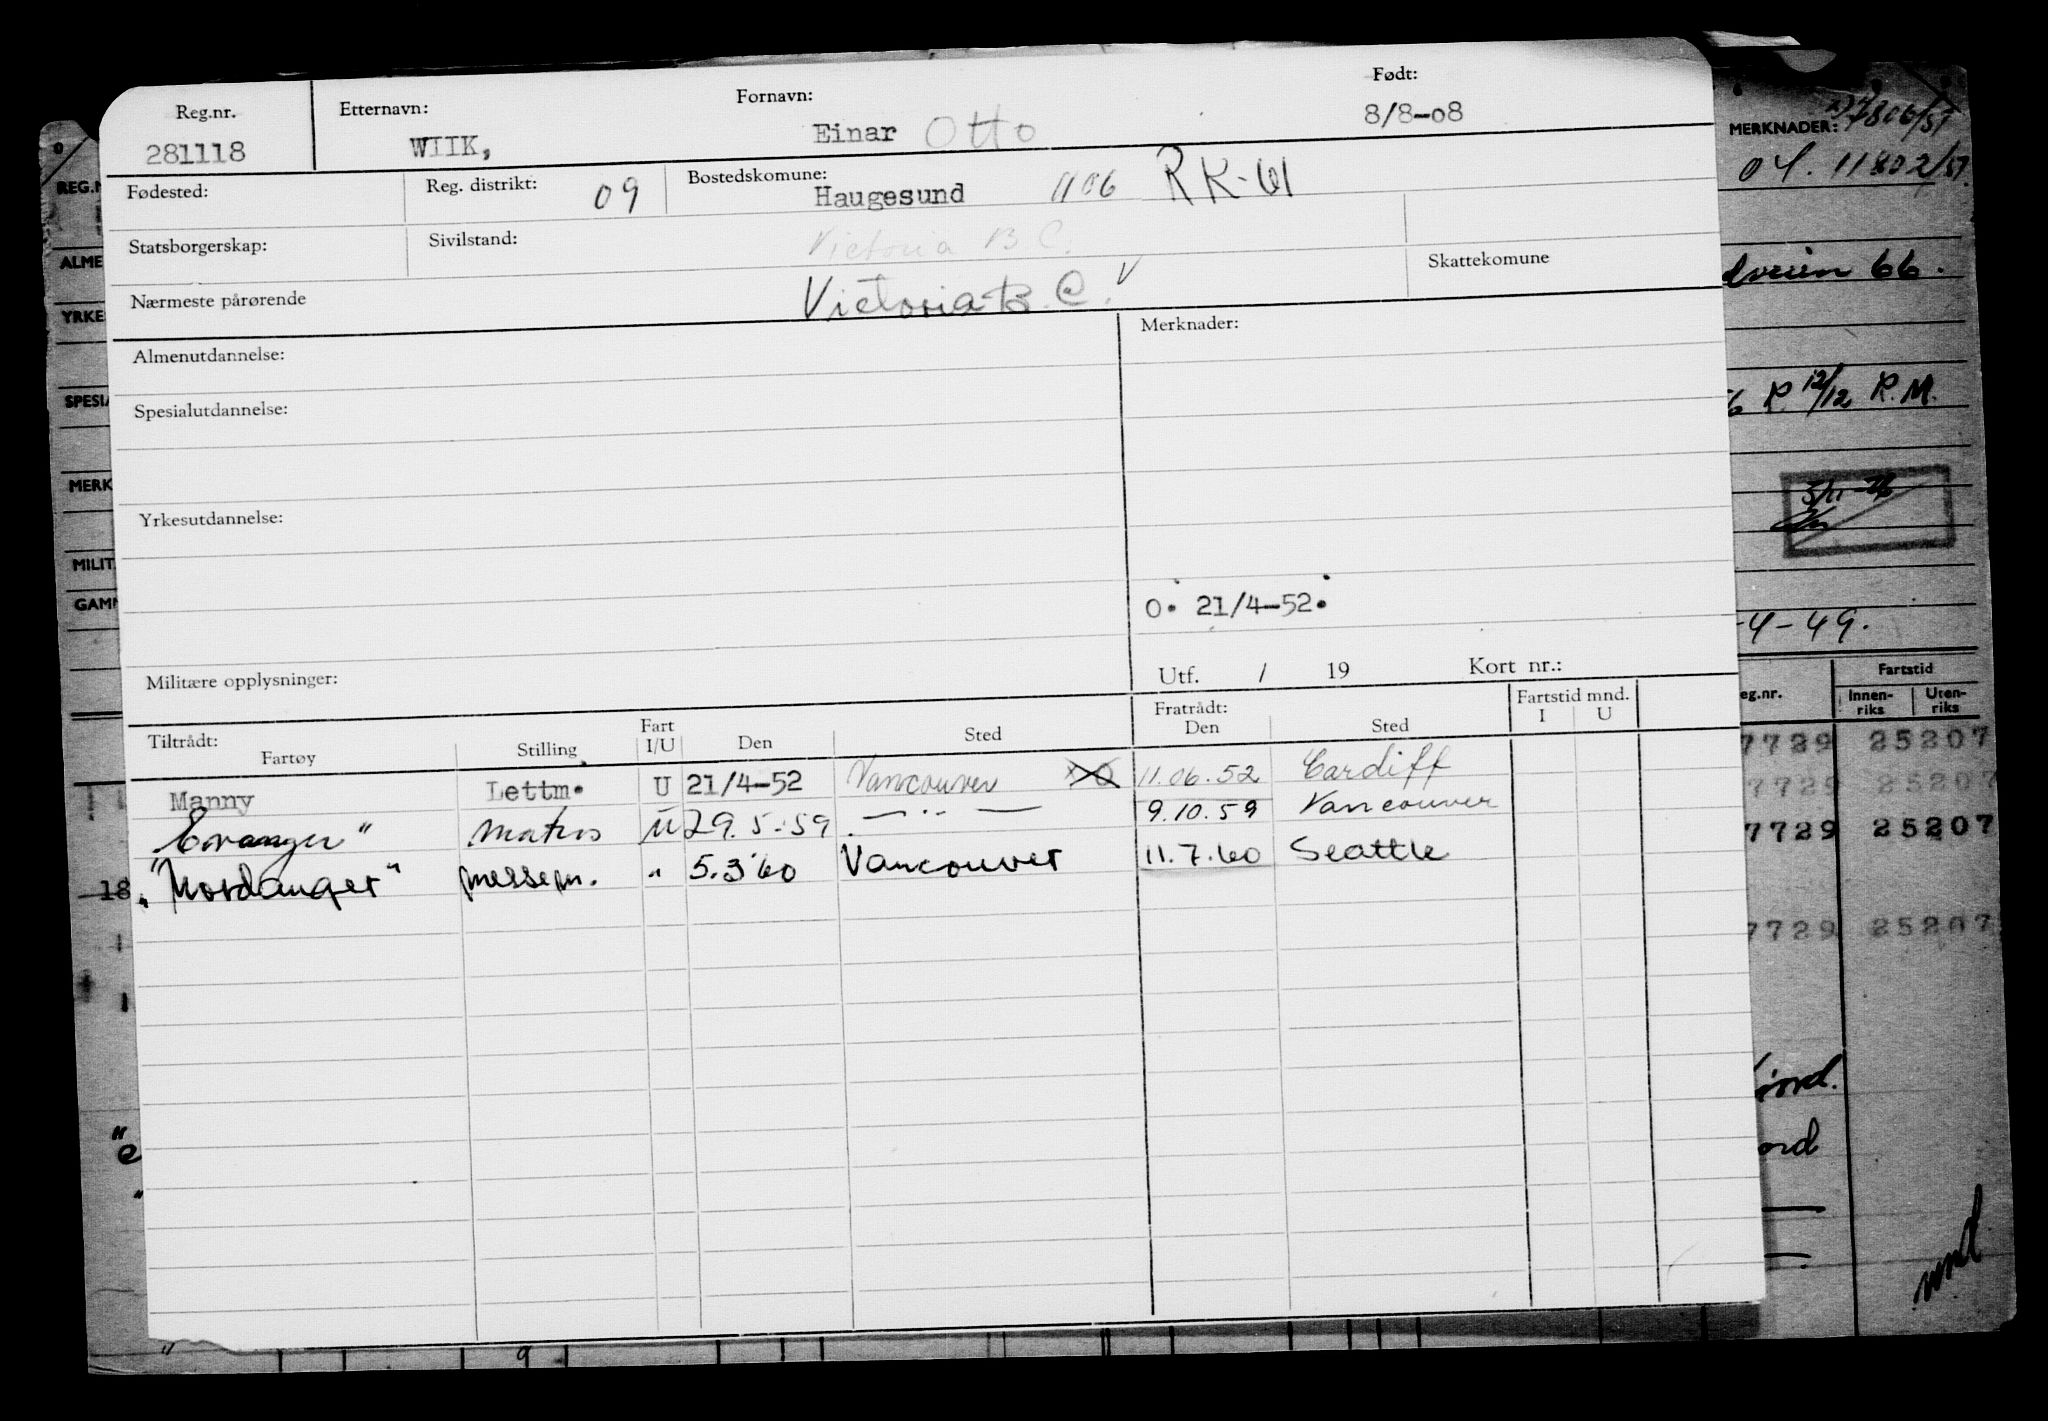 Reg.nr. Etternavn: Fornavn: Født:
281118 WIIK, Einar Otto 8/8-08
Fødested: Reg. distrikt: 09 Bostedskomune: Haugesund 1106 RK-61
Statsborgerskap: Sivilstand: Victoria B.C.
Skattekomune
Nærmeste pårørende Victoria B.C. V
Almenutdannelse: Merknader:
Spesialutdannelse:
Yrkesutdannelse:
O. 21/4-52.
Militære opplysninger: Utf. / 19 Kort nr.:
Tiltrådt: Fart Fratrådt: Fartstid mnd.
Fartøy Stilling I/U Den Sted Den Sted I U
Manny Lettm. U 21/4-52 Vancouver 11.06.52 Cardiff
Evanger" matros U 29.5.59 — " — 9.10.59 Vancouver
"Nordanger" messepm. " 5.3.60 Vancouver 11.7.60 Seattle
MERKNADER: 27806/51
04. 11802/51.
66.
R 12/12 R.M.
-4-49.
eg.nr. Fartstid
Innen-riks Uten-riks
7729 25207
7729 25207
7729 25207
7729 25207
ord
mnd
REG.N
ALME
YRKE
SPESIA
MERK
MILIT
GAMM
18